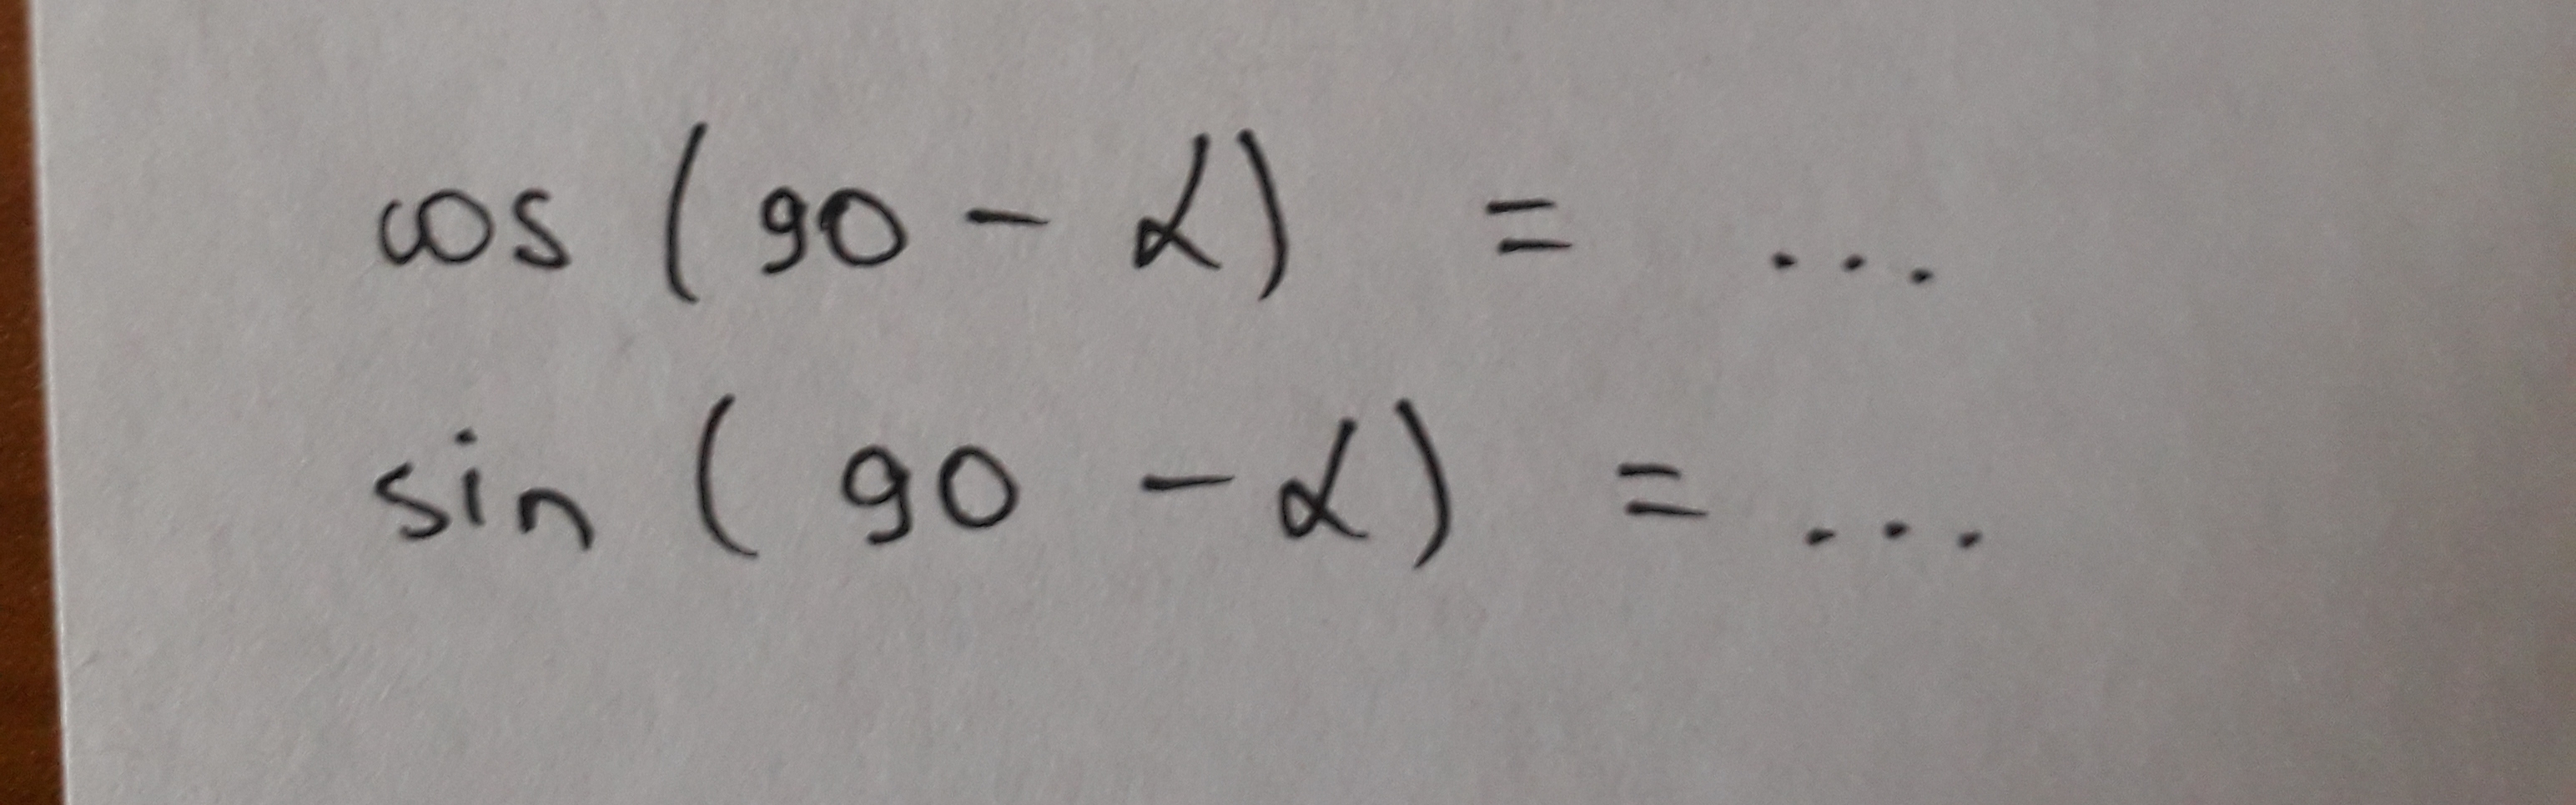 cos (90 - α) = ...
sin (90 - α) = ...